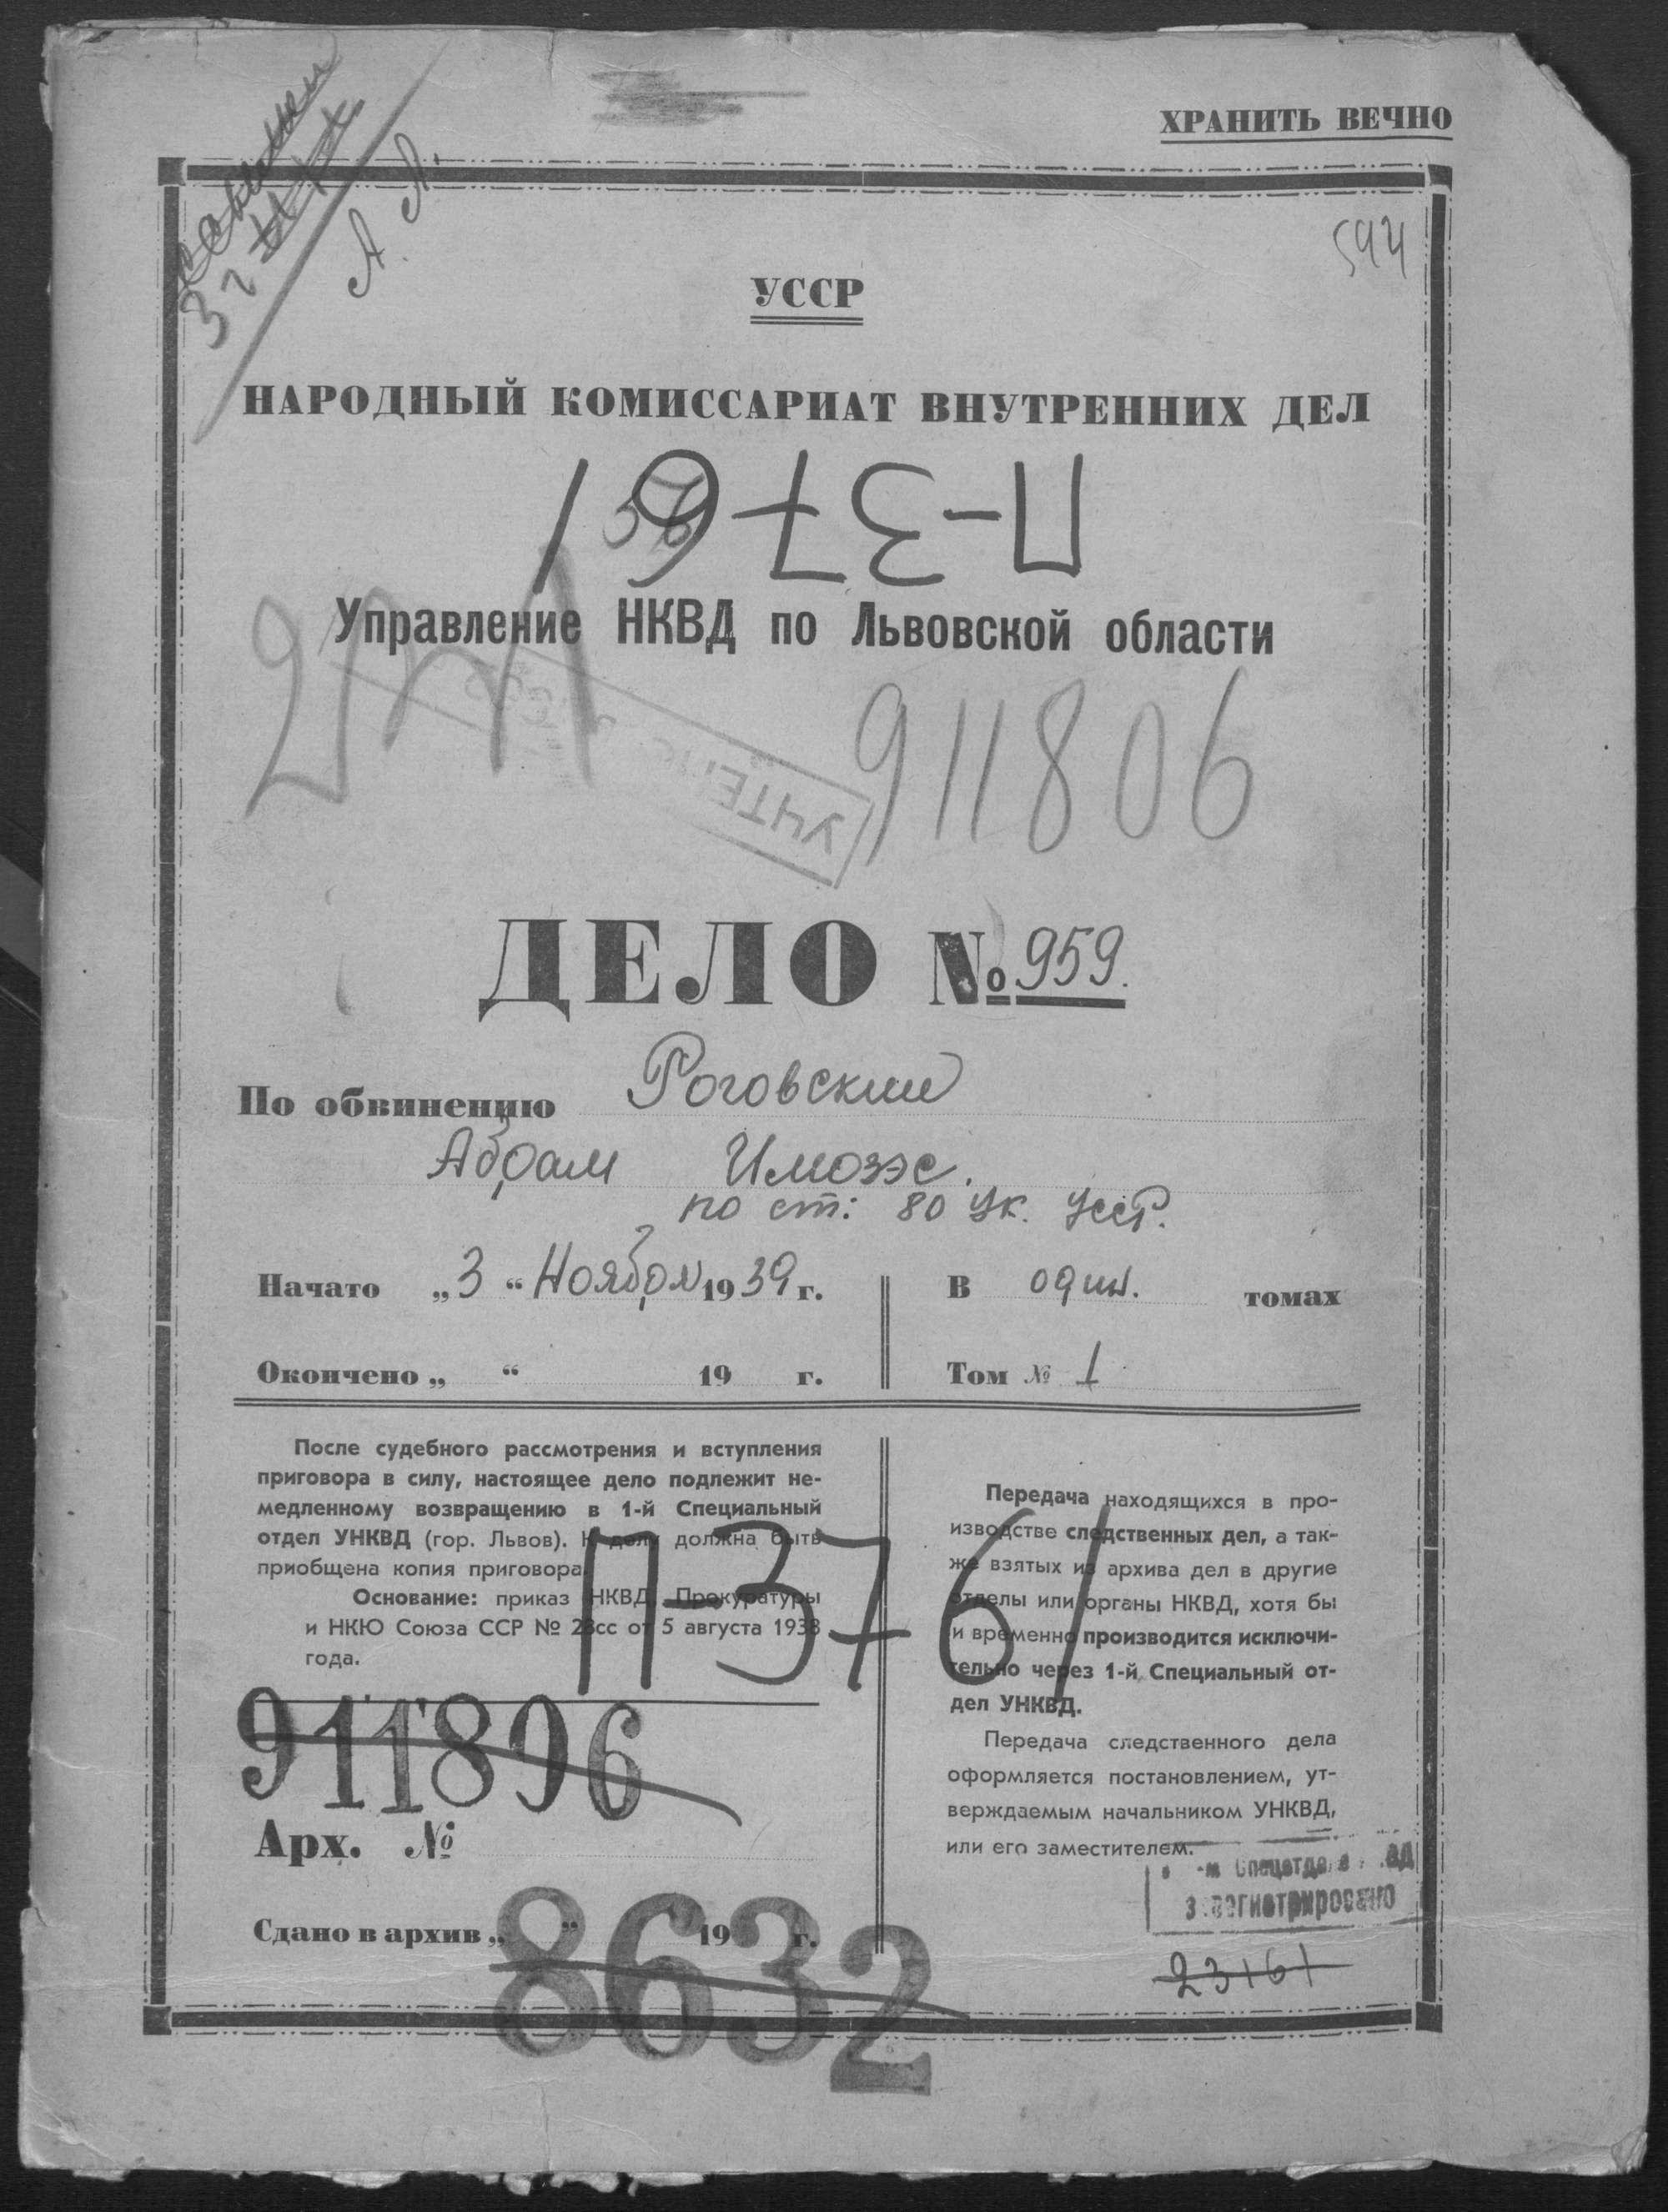 ХРАНИТЬ ВЕЧНО
3 г
А. Л.
594
УССР
НАРОДНЫЙ КОМИССАРИАТ ВНУТРЕННИХ ДЕЛ
П-3761
56
Управление НКВД по Львовской области
УЧТЕНО
911806
ДЕЛО № 959.
По обвинению Роговский
Абрам Имозэс.
по ст: 80 Ук. Усср.
Начато „3“ Ноября 1939 г.
В один. томах
Окончено „ “ 19 г.
Том № 1
После судебного рассмотрения и вступления
приговора в силу, настоящее дело подлежит не-
медленному возвращению в 1-й Специальный
отдел УНКВД (гор. Львов). К делу должна быть
приобщена копия приговора.
Основание: приказ НКВД, Прокуратуры
и НКЮ Союза ССР № 23сс от 5 августа 1938
года.
Передача находящихся в про-
изводстве следственных дел, а так-
же взятых из архива дел в другие
отделы или органы НКВД, хотя бы
и временно производится исключи-
тельно через 1-й Специальный от-
дел УНКВД.
Передача следственного дела
оформляется постановлением, ут-
верждаемым начальником УНКВД,
или его заместителем.
П-3761
911896
Арх. №
Сдано в архив „ “ 19 г.
8632
Спецотделе
зарегистрировано
23161